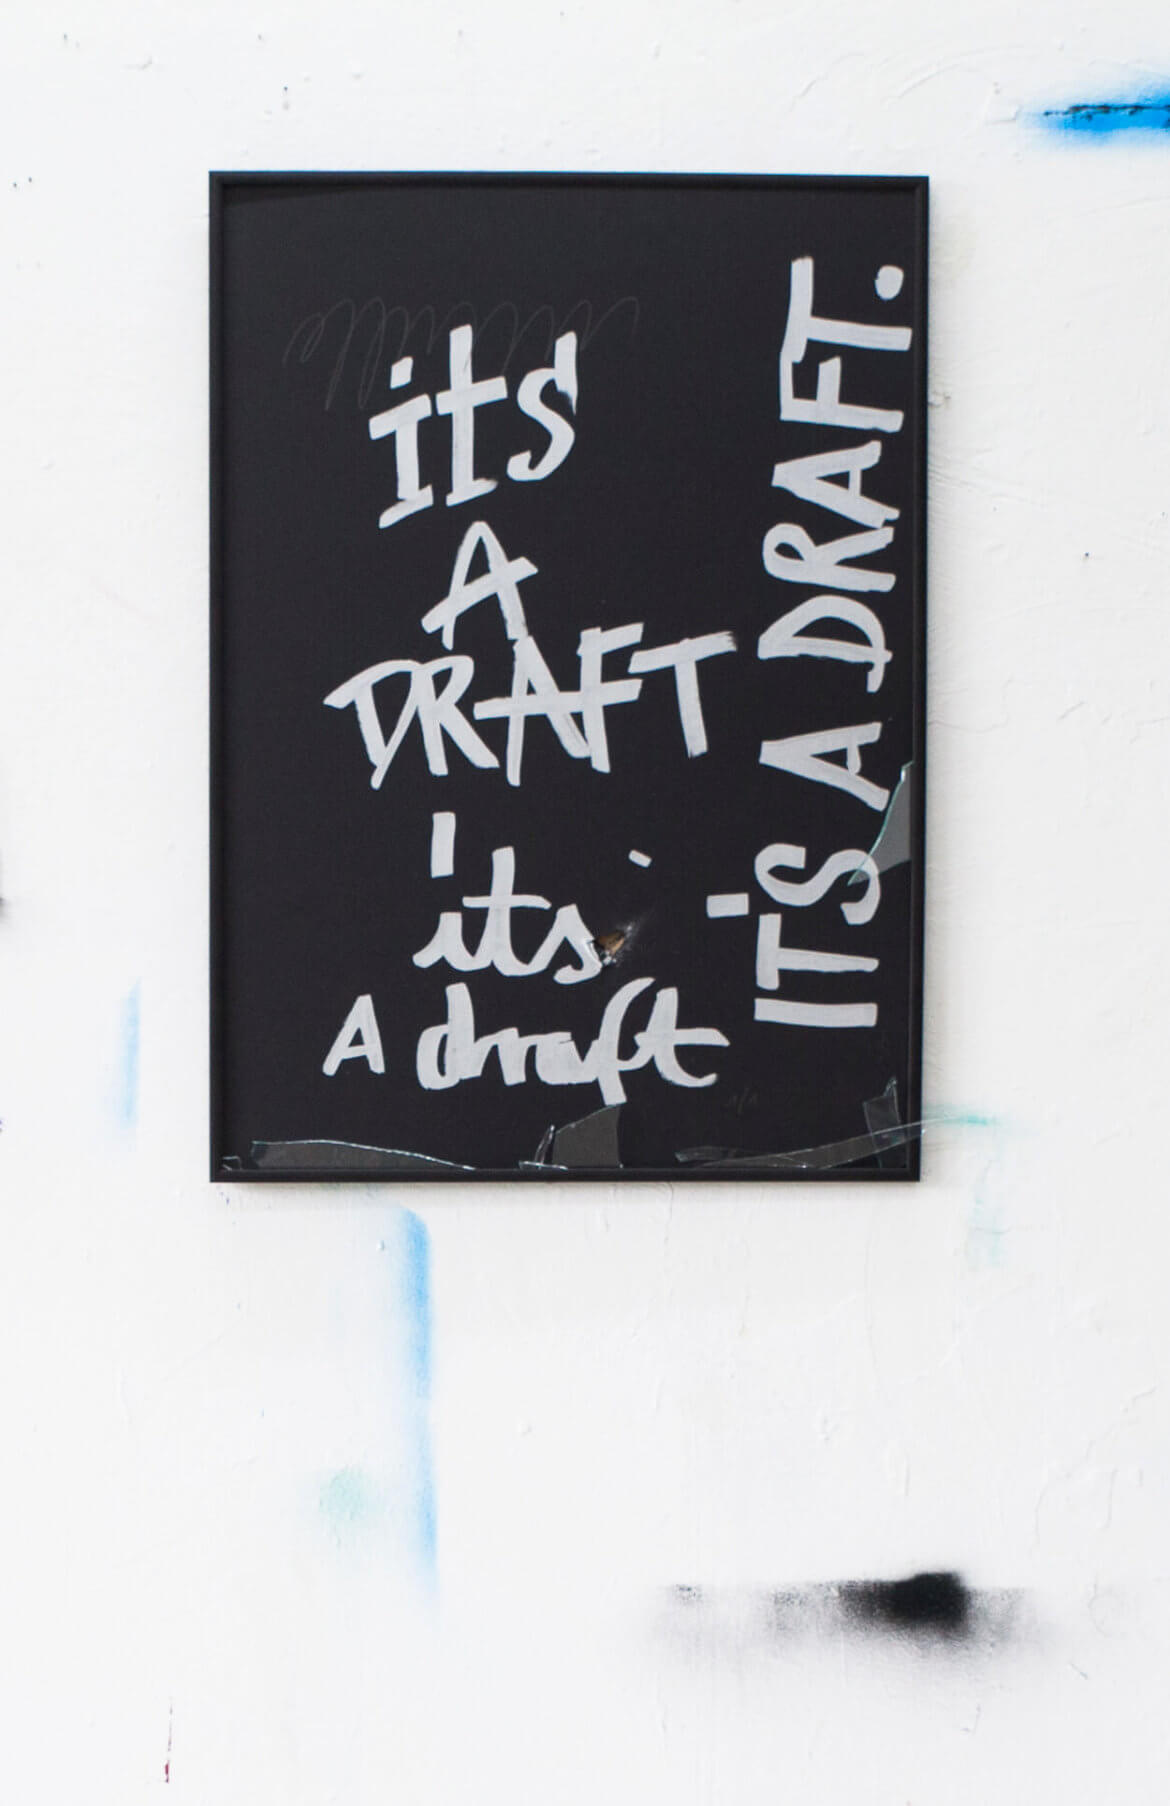 its
A
DRAFT
its
A draft
IT'S A DRAFT.
1/1